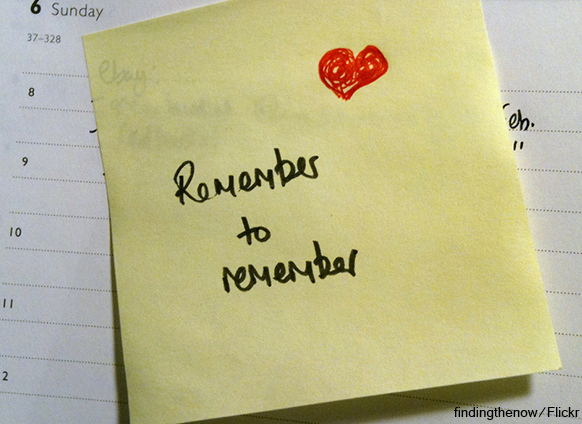 6 Sunday
37-328
8
9
10
11
2
eb.
"
ebay:
Remember
to
remember
findingthenow/Flickr